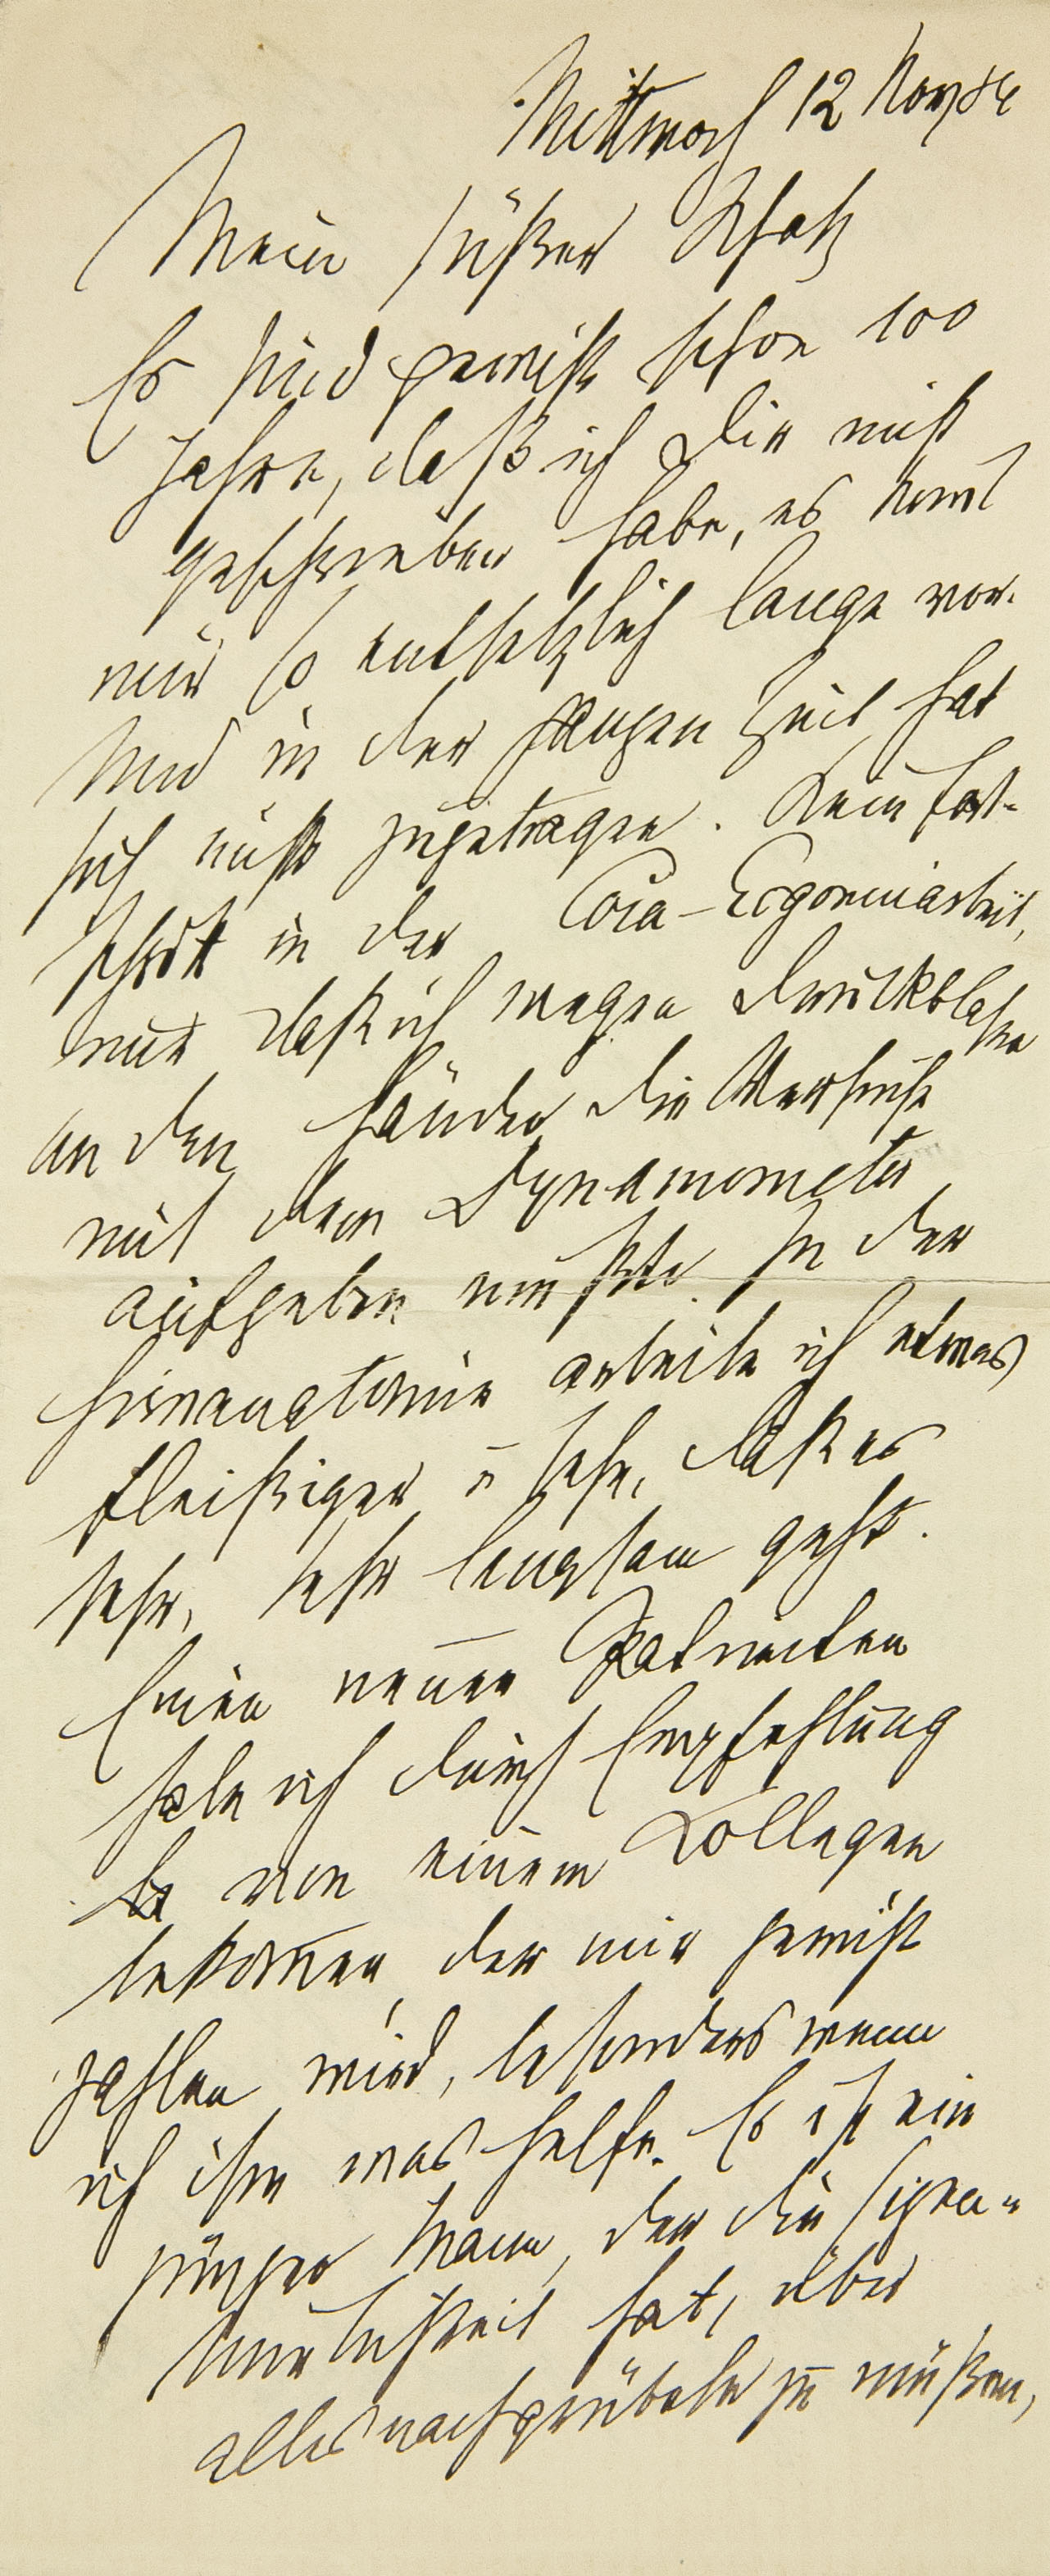 Mittwoch 12 Nov 84
Mein süßer Schatz
Es sind gewiß schon 100
Jahre, daß ich Dir nicht
geschrieben habe, es komt
mir so entsetzlich lange vor.
Und in der ganzen Zeit hat
sich nichts zugetragen. Kein Fort-
schritt in der Coca-Ecgoninarbeit,
nur daß ich wegen Druckblasen
an den Händen die Versuche
mit dem Dynamometer
aufgeben mußte. In der
Hirnanatomie arbeite ich etwas
fleißiger u sehe, daß es
sehr, sehr langsam geht.
Einen neuen Patienten
habe ich durch Empfehlung
von einem Kollegen
bekommen, der mir gewiß
zahlen wird, besonders wenn
ich ihm was helfe. Es ist ein
junger Mann, der die Eigen-
tümlichkeit hat, über
alles nachgrübeln zu müßen,